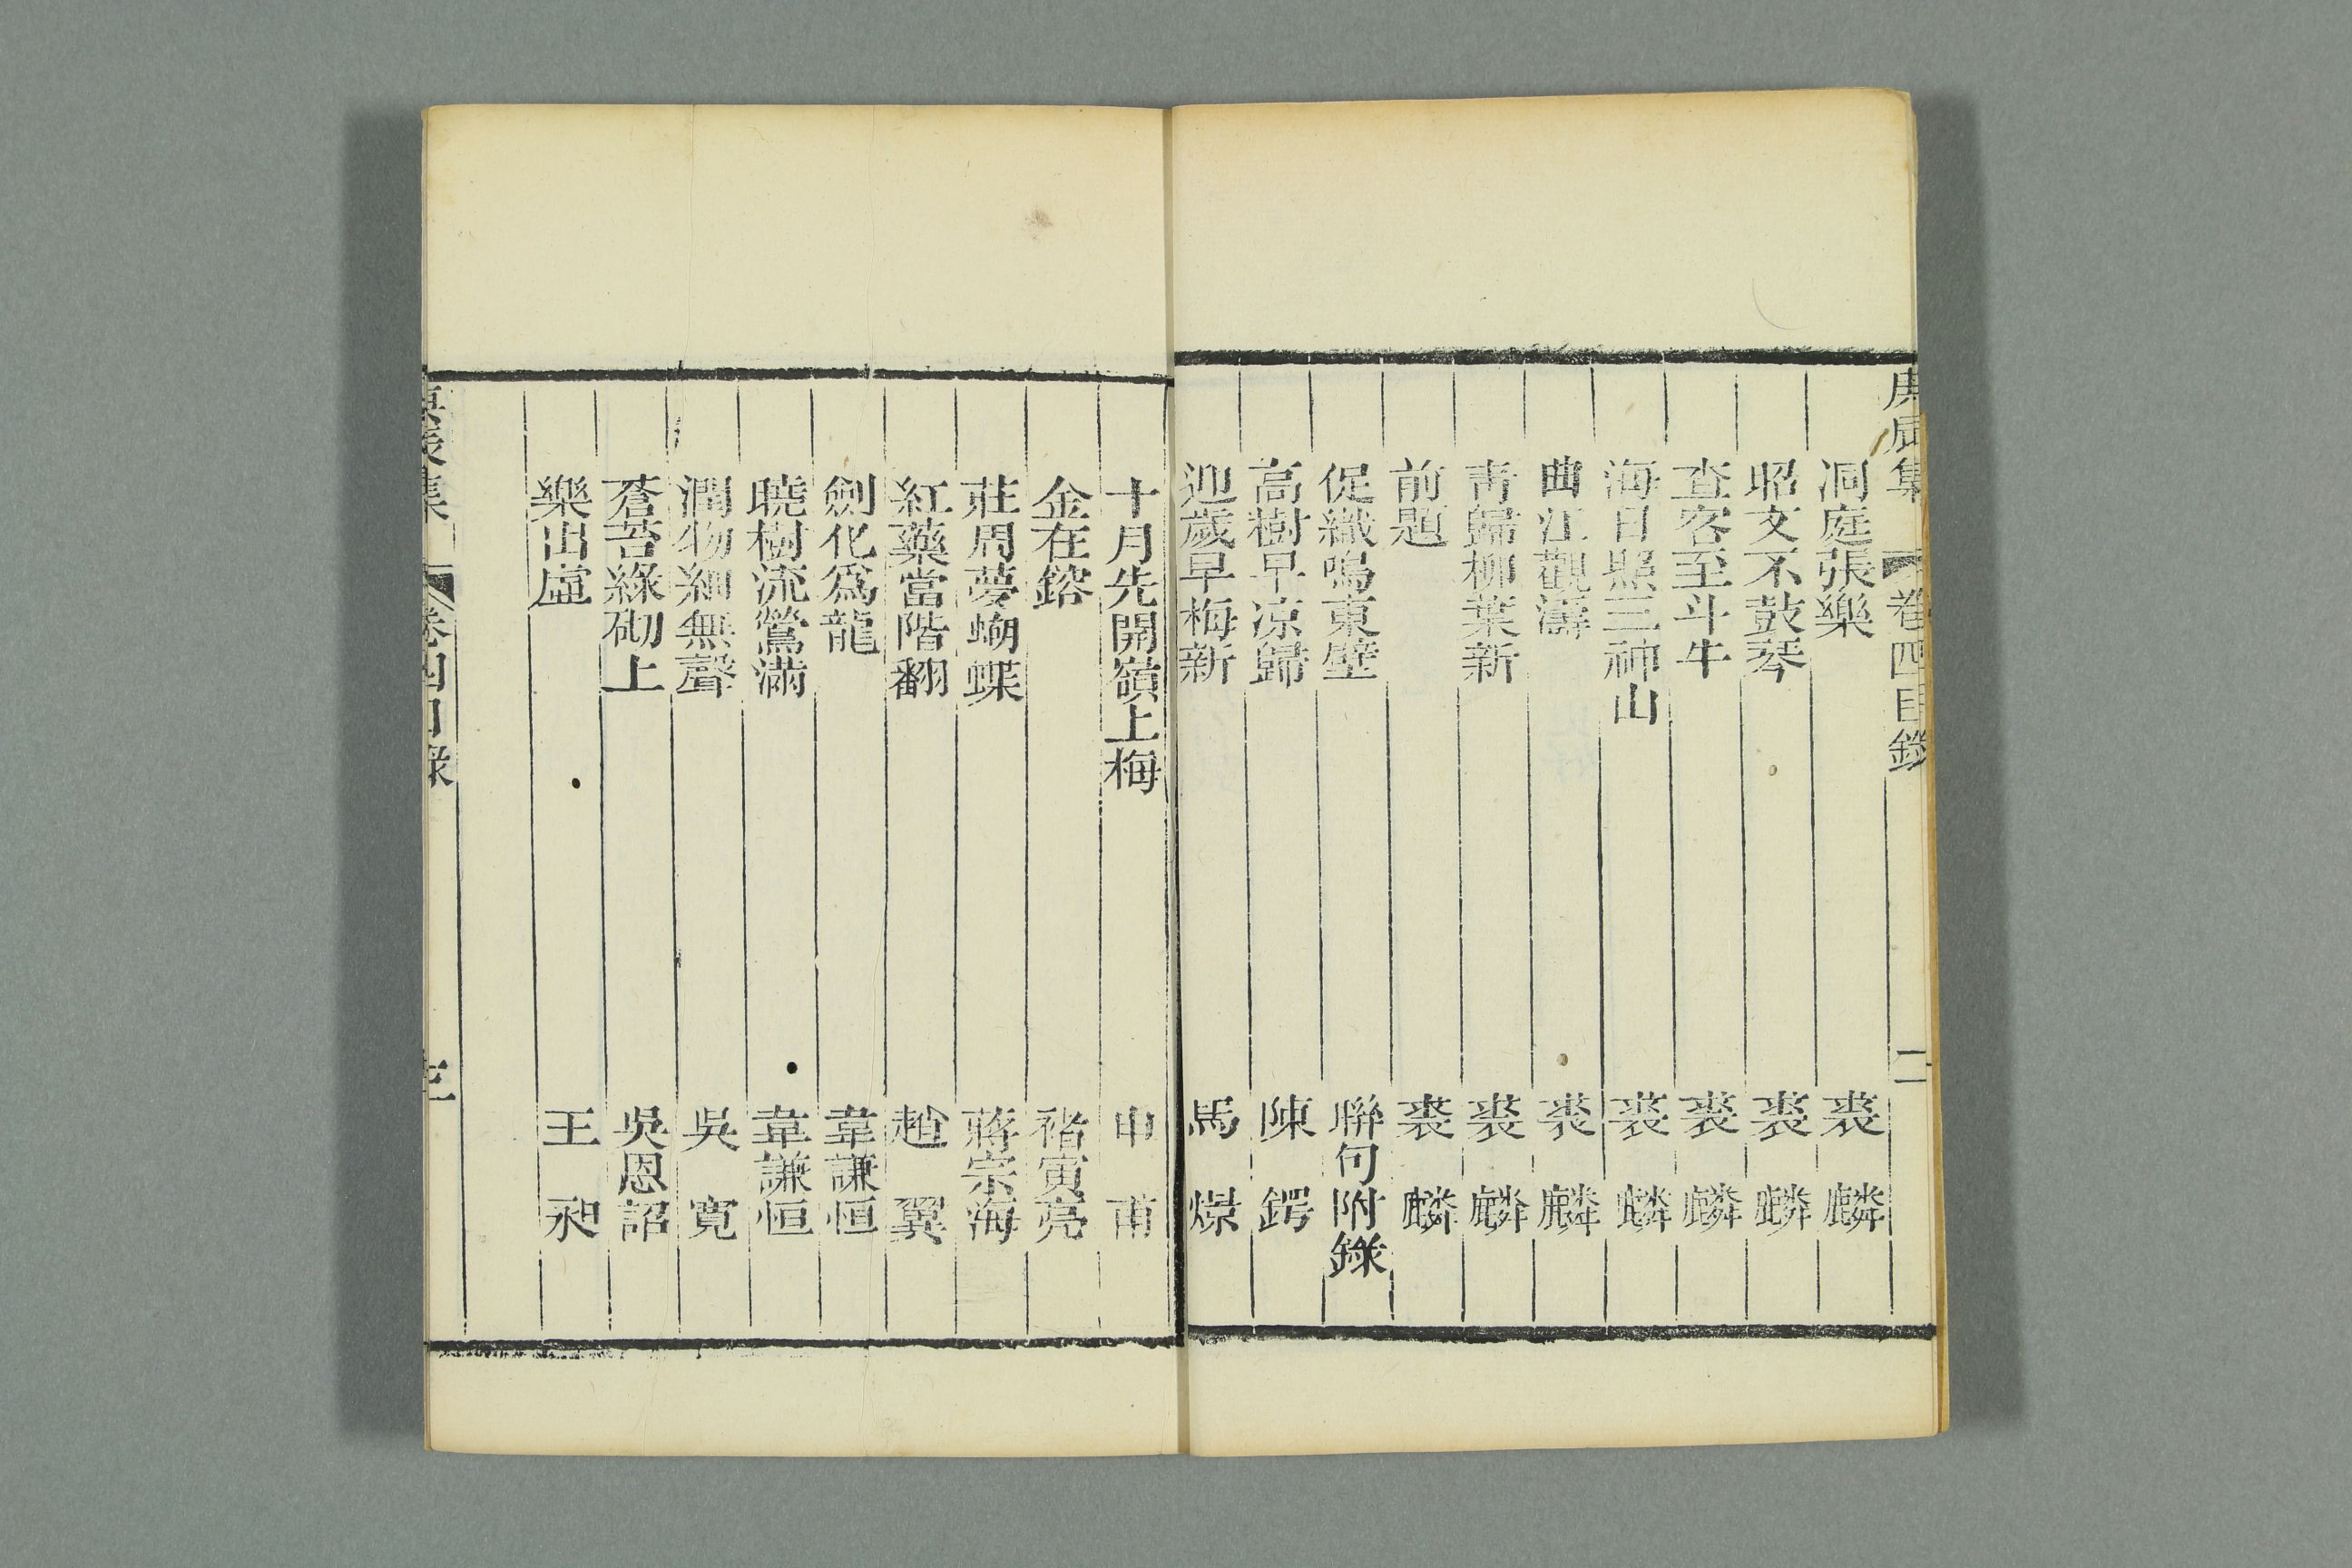 庚辰集 卷四目錄 二
洞庭張樂 裘麟
昭文不鼓琴 裘麟
查客至斗牛 裘麟
海日照三神山 裘麟
曲江觀濤 裘麟
青歸柳葉新 裘麟
前題 裘麟
促織鳴東壁 聯句附錄
高樹早涼歸 陳鍔
迎歲早梅新 馬燝
十月先開嶺上梅 申甫
金在鎔 褚寅亮
莊周夢蝴蝶 蔣宗海
紅藥當階翻 趙翼
劍化爲龍 韋謙恒
曉樹流鶯滿 韋謙恒
潤物細無聲 吳寬
蒼苔緣砌上 吳恩詔
樂出虛 王昶
庚辰集 卷四目錄 三